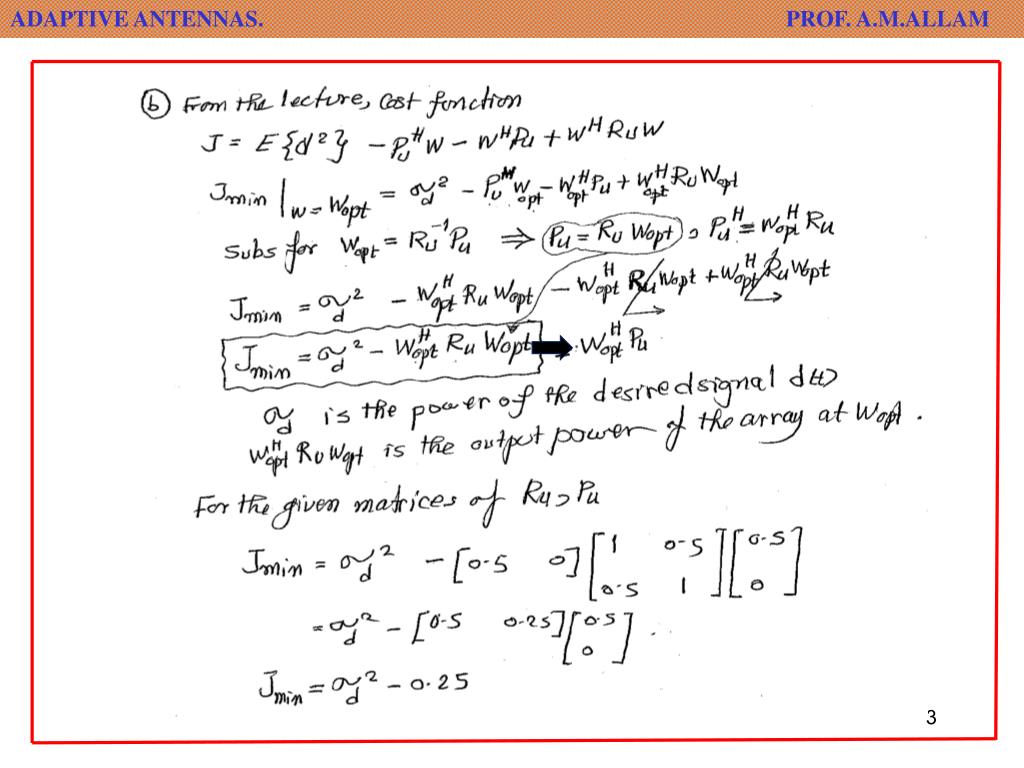 ADAPTIVE ANTENNAS. PROF. A.M.ALLAM
ⓑ From the lecture, cost function
J = E{d²} - Pᵤᴴ W - Wᴴ Pᵤ + Wᴴ Rᵤ W
Jmin |w=Wopt = σd² - Pᵤᴴ Wopt - Woptᴴ Pᵤ + Woptᴴ Rᵤ Wopt
Subs for Wopt = Rᵤ⁻¹ Pᵤ ⇒ Pᵤ = Rᵤ Wopt, Pᵤᴴ = Woptᴴ Rᵤ
Jmin = σd² - Woptᴴ Rᵤ Wopt - Woptᴴ Rᵤ Wopt + Woptᴴ Rᵤ Wopt
Jmin = σd² - Woptᴴ Rᵤ Wopt ➡ Woptᴴ Pᵤ
σd is the power of the desired signal d(t)
Woptᴴ Rᵤ Wopt is the output power of the array at Wopt.
For the given matrices of Rᵤ, Pᵤ
Jmin = σd² - [0.5 0] [1 0.5; 0.5 1] [0.5; 0]
= σd² - [0.5 0.25] [0.5; 0]
Jmin = σd² - 0.25
3